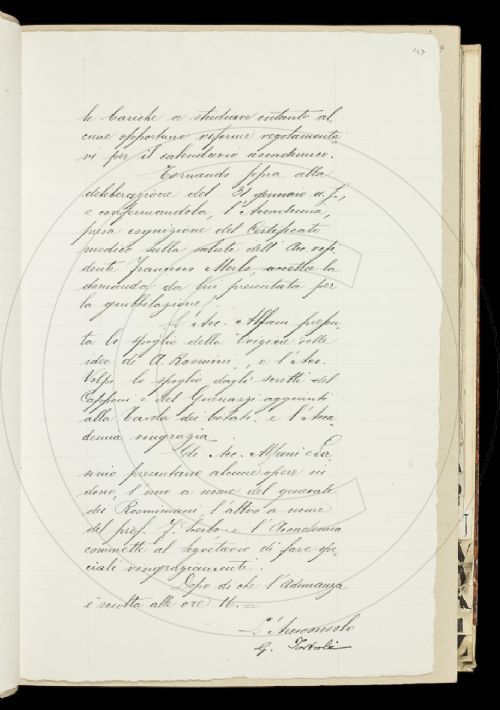 le cariche a studiare intanto al
cune opportune riforme regolamenta
ri per il calendario accademico.
Tornando sopra alla
deliberazione del 31 gennaio u. s.,
e confermandola, l'Accademia,
presa cognizione del Certificato
medico sulla salute dell'Acc. resi
dente Francesco Merlo accetta la
domanda da lui presentata per
la giubbilazione.
L'Acc. Alfani presen
ta lo spoglio della "Origine delle
idee di A. Rosmini", e l'Acc.
Volpi lo spoglio dagli scritti del
Capponi e del Guerazzi aggiunti
alla Tavola dei Citati: e l'Acca
demia ringrazia.
Gli Acc. Alfani e
presentano alcune opere in
dono, l'uno a nome del generale
l'altro a nome
del prof. e l'Accademia
commette al Segretario di fare spe-
ciali ringraziamenti.
Dopo di che l'Adunanza
è sciolta alle ore 16. =
L'Arciconsolo
G. Tortoli